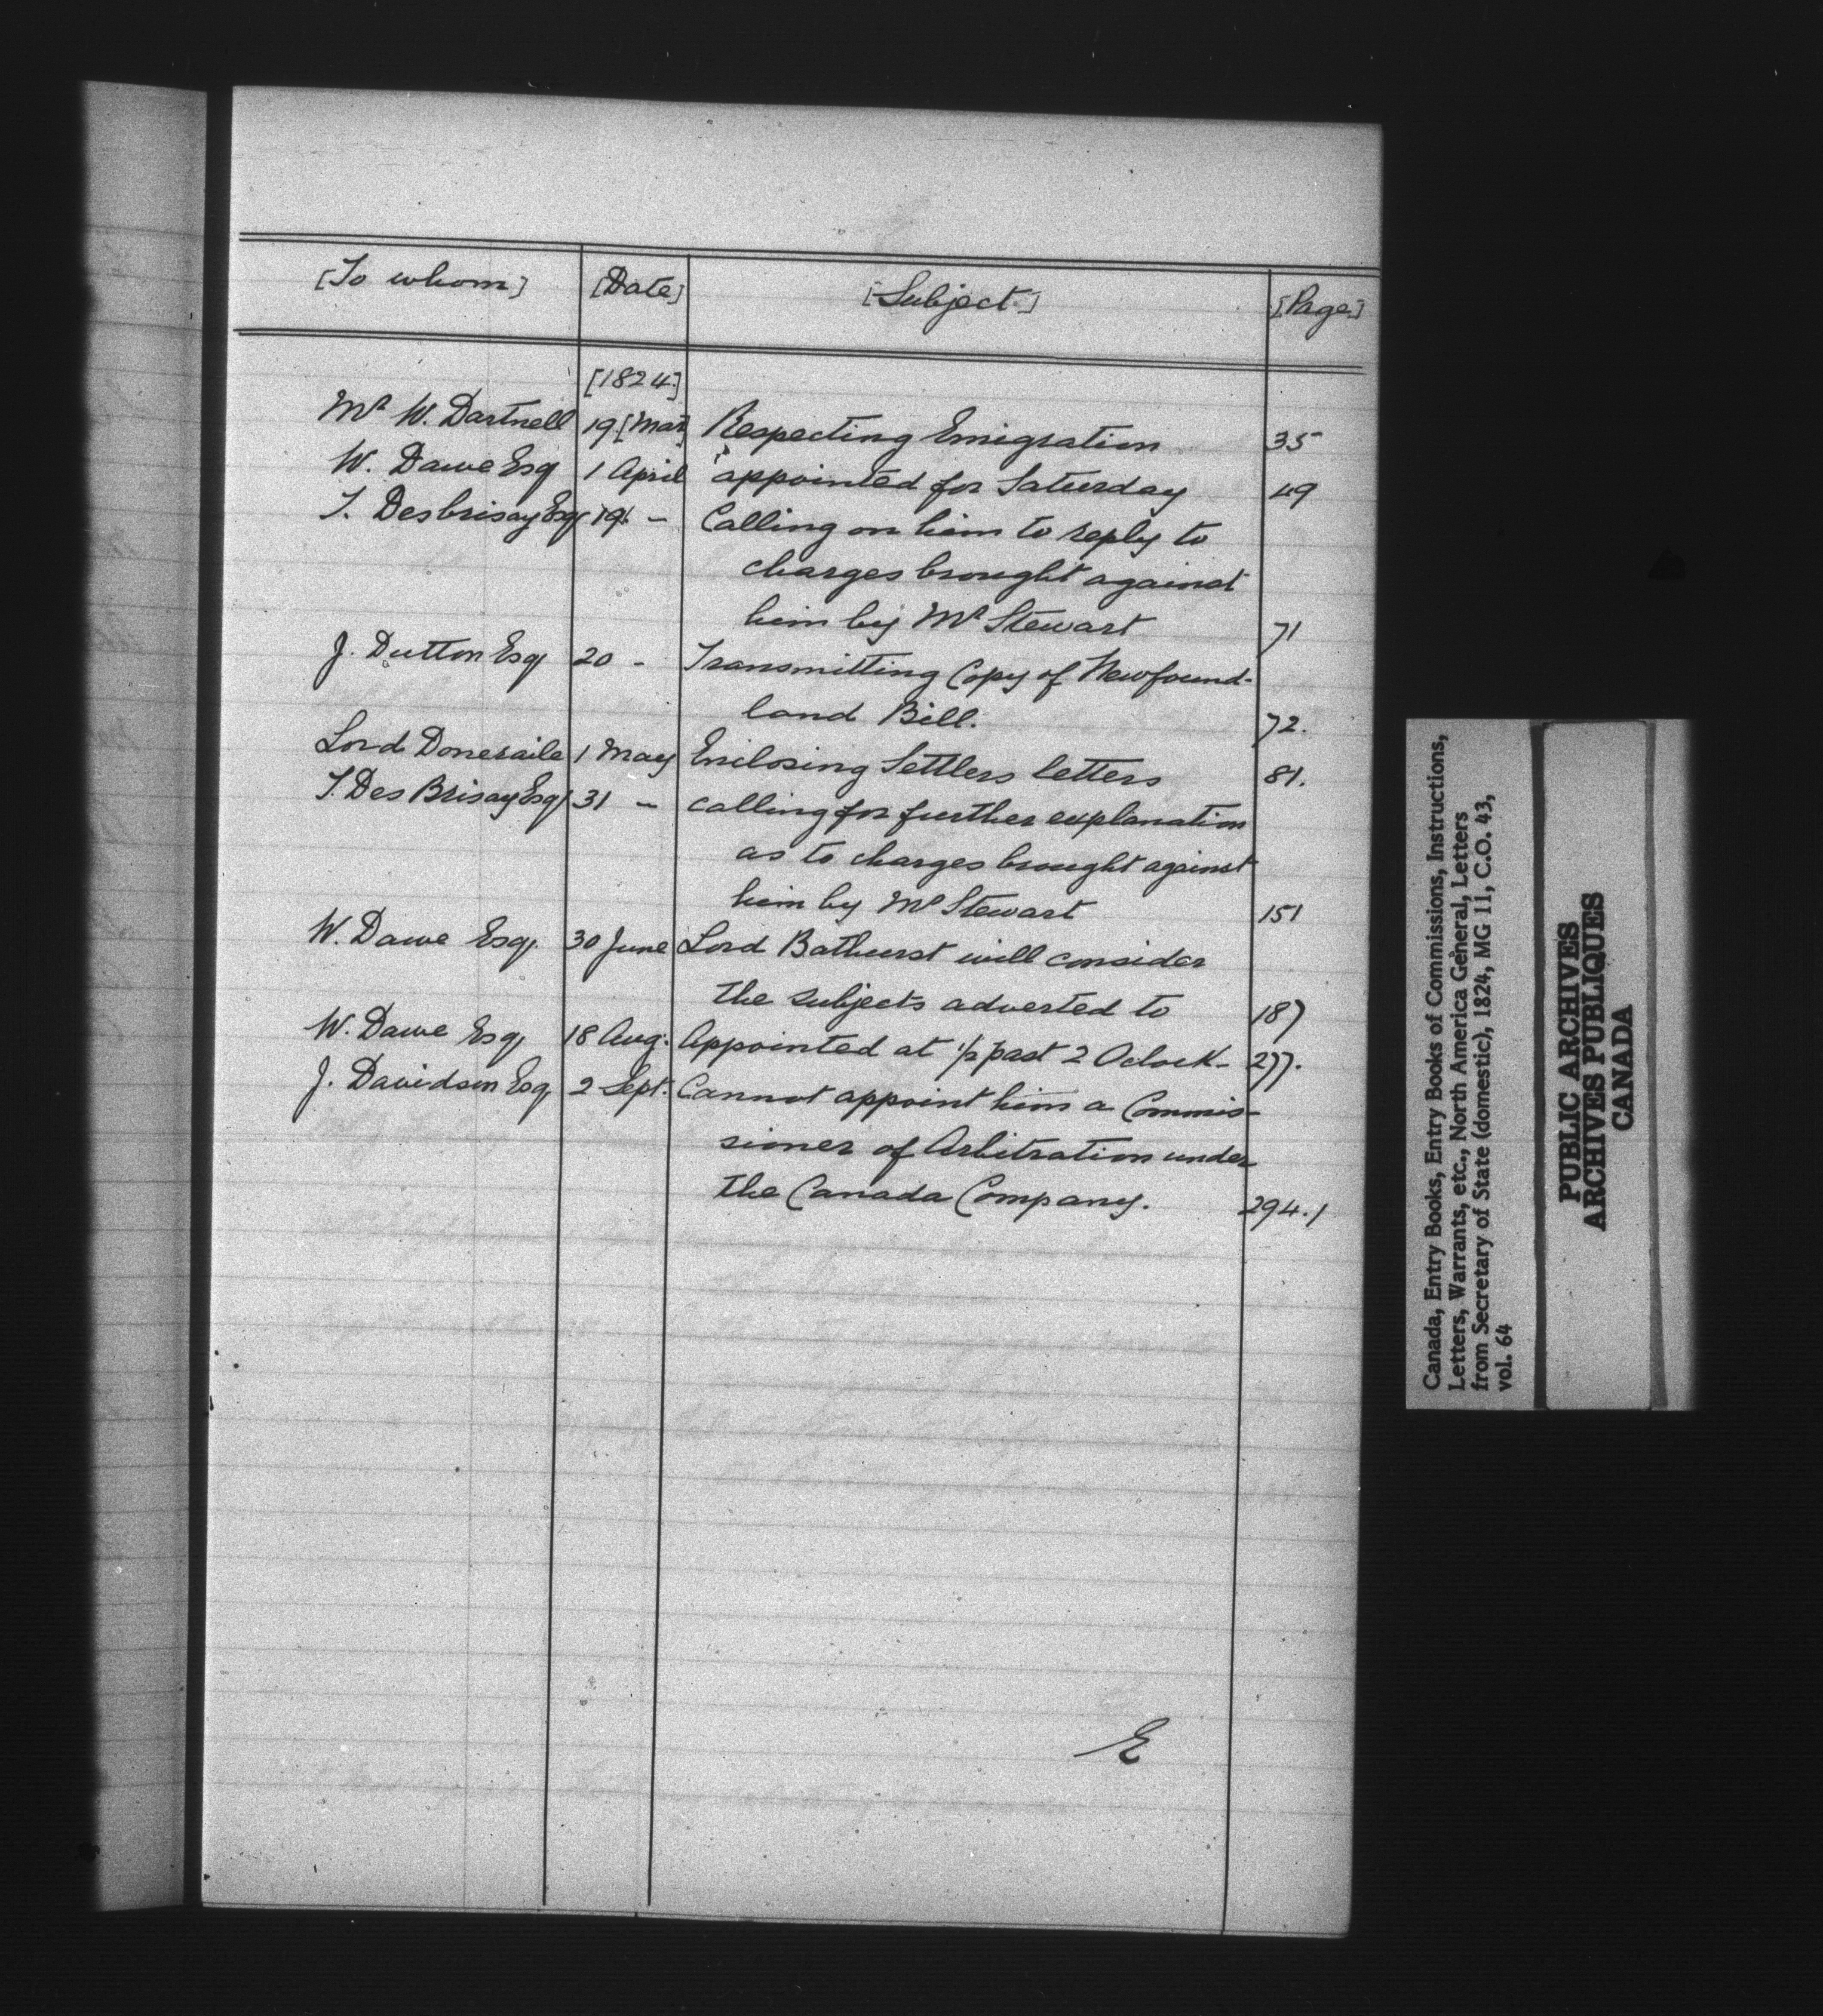 [To whom] [Date] [Subject.] [Page]
[1824]
Mr W. Dartnell 19 [Mar] Respecting Emigration 35
W. Dawe Esq 1 April appointed for Saturday 49
T. Desbrisay Esq 19. — Calling on him to reply to
charges brought against
him by Mr Stewart 71
J. Dutton Esq 20 - Transmitting Copy of Newfound-
land Bill. 72.
Lord Doneraile 1 May Enclosing Settlers letters 81.
T. Des Brisay Esq 31 — calling for further explanation
as to charges brought against
him by Mr Stewart 151
W. Dawe Esq. 30 June Lord Bathurst will consider
the subjects adverted to 187
W. Dawe Esq 18 Aug. Appointed at 1/2 past 2 Oclock- 277.
J. Davidson Esq 2 Sept. Cannot appoint him a Commis-
sioner of Arbitration under
the Canada Company. 294.1
E
Canada, Entry Books, Entry Books of Commissions, Instructions,
Letters, Warrants, etc., North America General, Letters
from Secretary of State (domestic), 1824, MG 11, C.O. 43,
vol. 64
PUBLIC ARCHIVES
ARCHIVES PUBLIQUES
CANADA